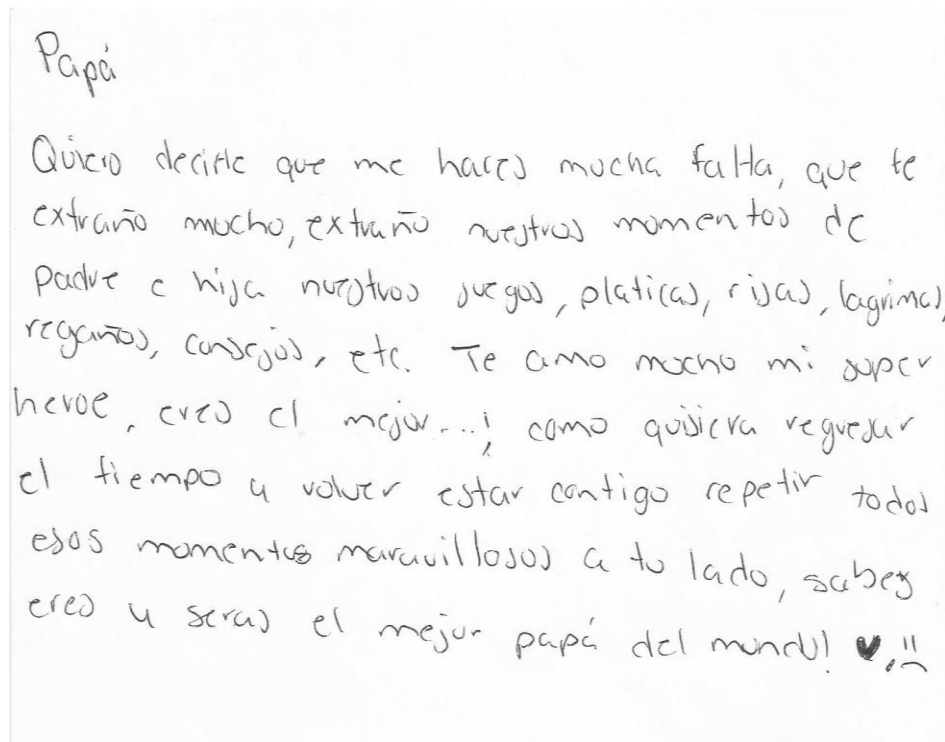 Papá
Quiero decirte que me haces mucha falta, que te
extraño mucho, extraño nuestros momentos de
padre e hija nuestros juegos, platicas, risas, lagrimas,
regaños, consejos, etc. Te amo mucho mi super
heroe, eres el mejor...! como quisiera regresar
el tiempo y volver estar contigo repetir todos
esos momentos maravillosos a tu lado, sabes
eres y seras el mejor papá del mundo! ♥,¨⌒